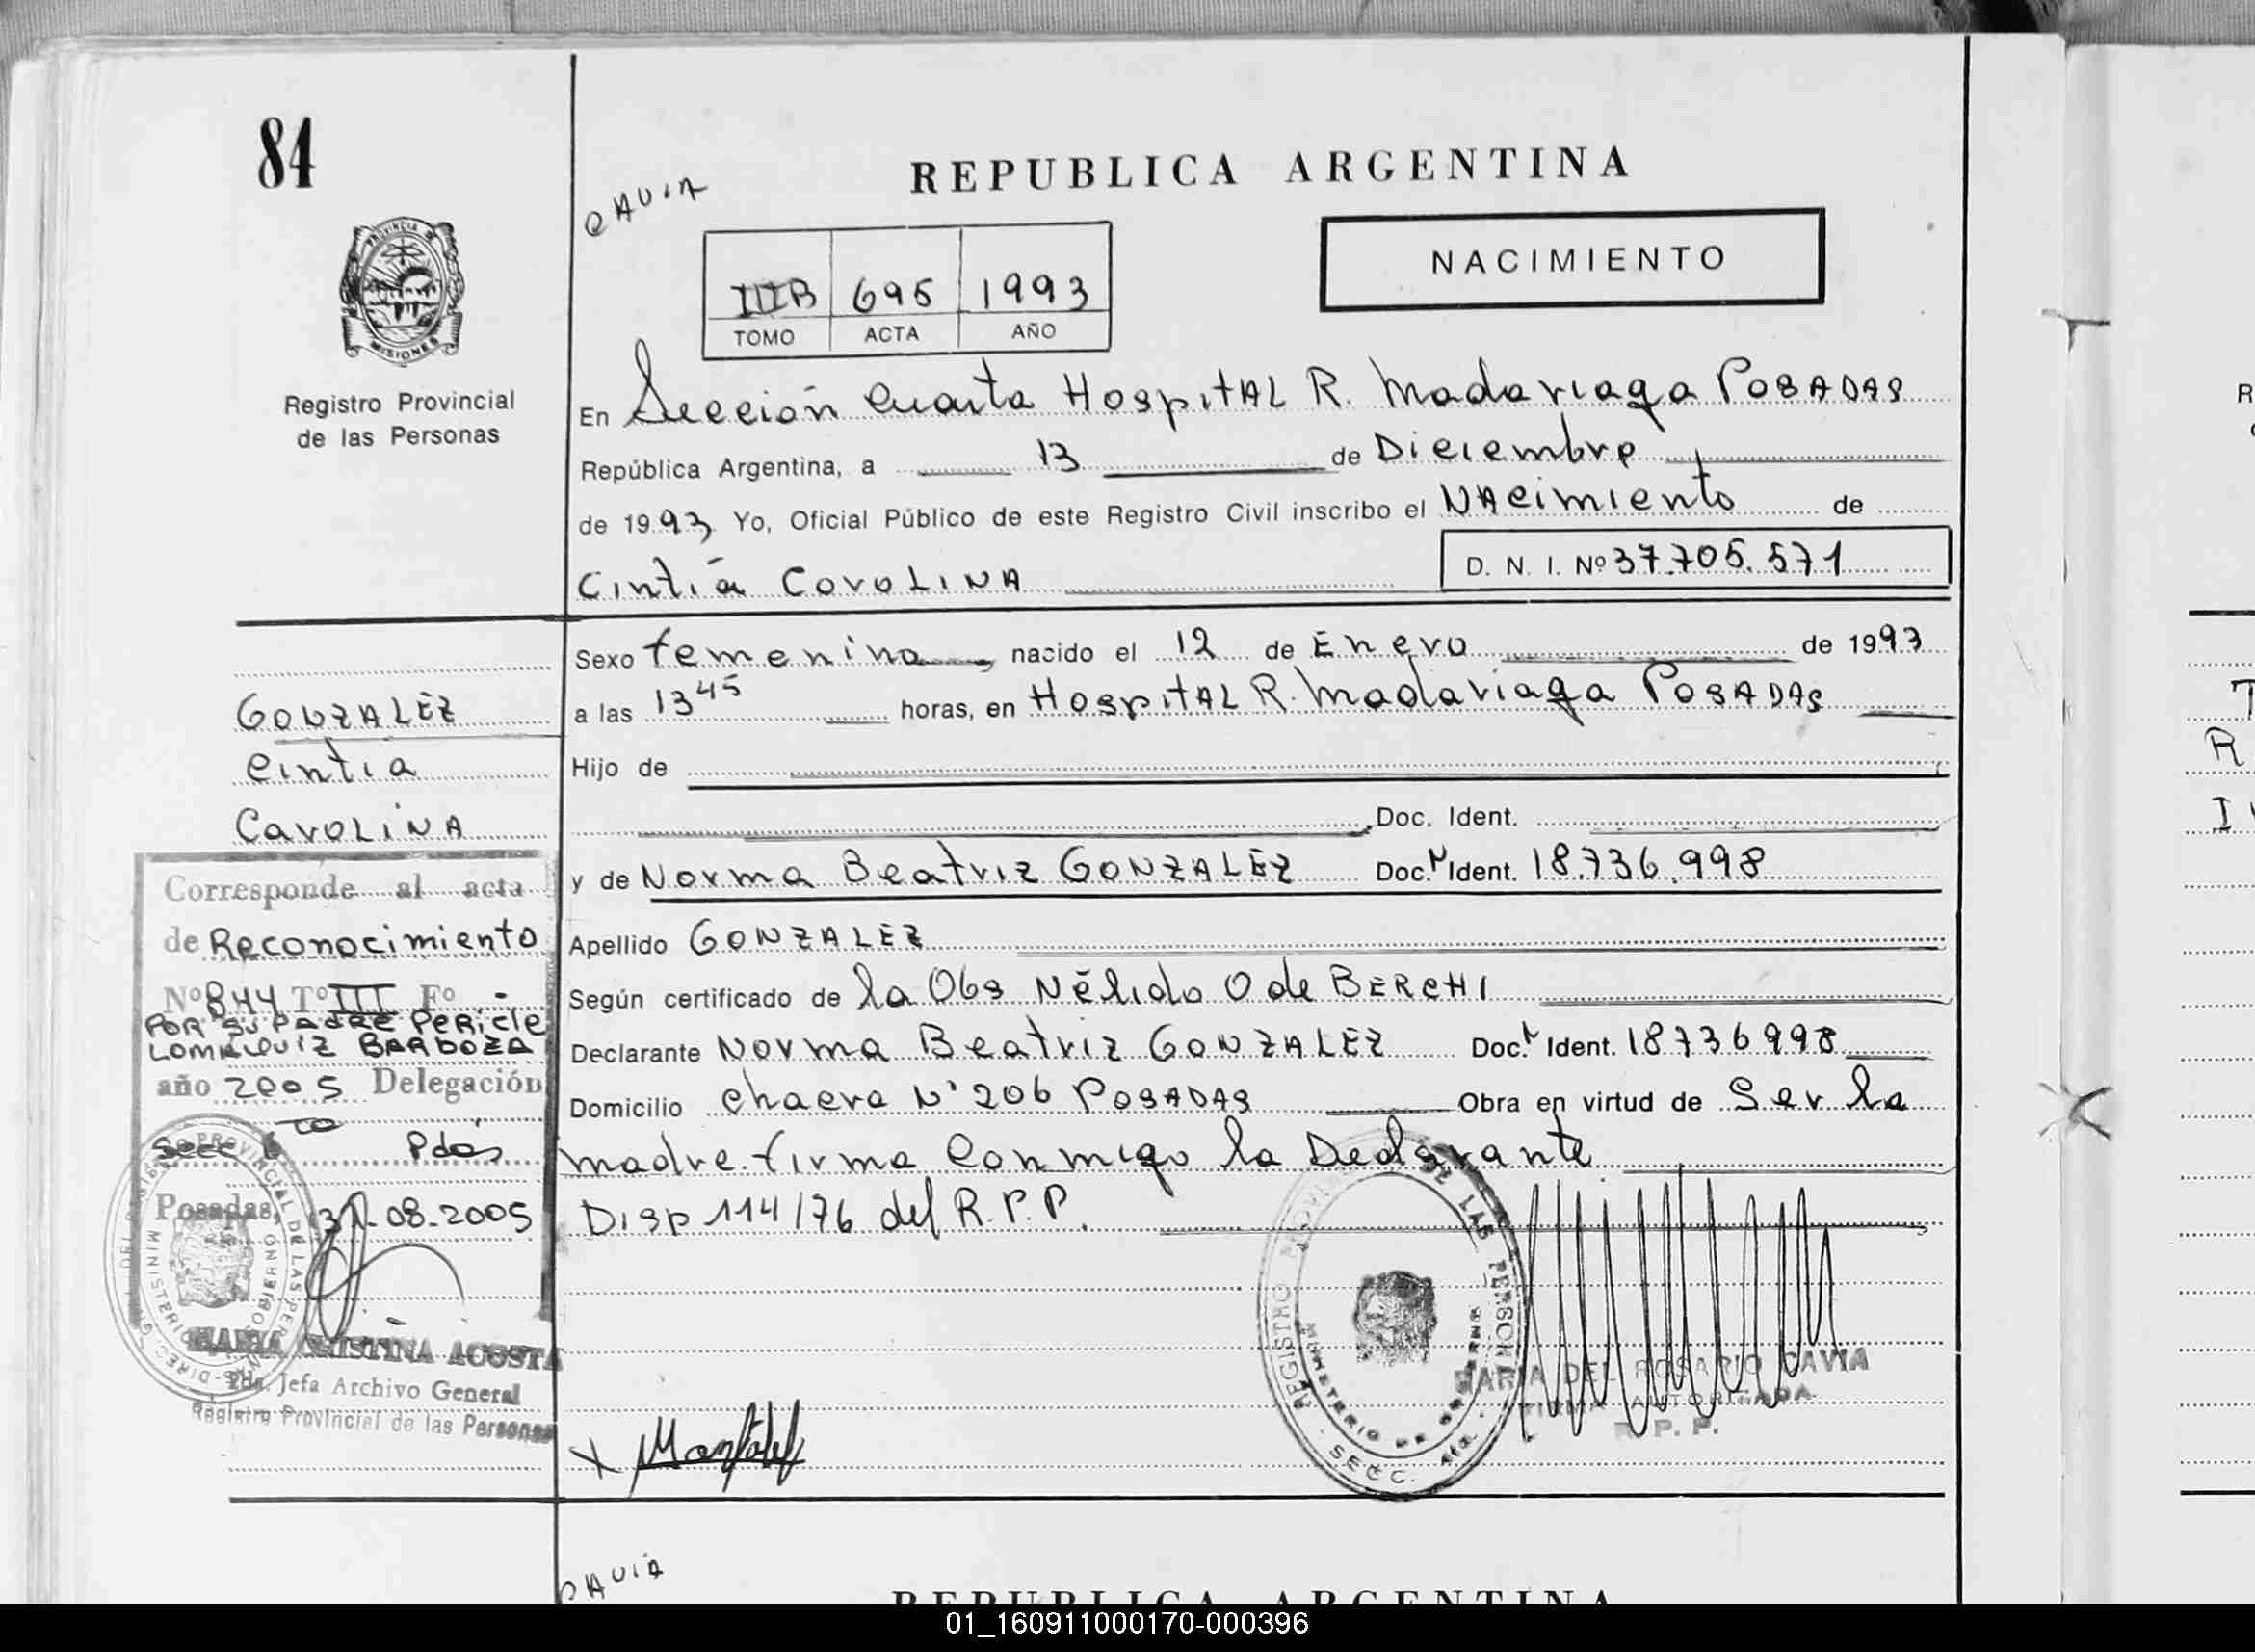 84
REPUBLICA ARGENTINA
CAVIA
NACIMIENTO
PROVINCIA D
MISIONES
Registro Provincial
de las Personas
IIIB 695 1993
TOMO ACTA AÑO
En Sección Cuarta Hospital R. Madariaga POSADAS
República Argentina, a 13 de Diciembre
de 1993 Yo, Oficial Público de este Registro Civil inscribo el Nacimiento de
Cintia Carolina D. N. I. Nº 37.705.571
Sexo femenino nacido el 12 de Enero de 1993
a las 13 45 horas, en Hospital R. Madariaga POSADAS
Hijo de
Doc. Ident.
y de Norma Beatriz GONZALEZ Doc. N Ident. 18.736.998
Apellido GONZALEZ
Según certificado de la Obs Nélida O de BERCHI
Declarante Norma Beatriz GONZALEZ Doc. N Ident. 18736998
Domicilio Chacra Nº 206 POSADAS Obra en virtud de Ser la
madre firma Conmigo la Declarante
Disp 114/76 del R.P.P.
GONZALEZ
Cintia
Carolina
Corresponde al acta
de Reconocimiento
Nº 844 Tº III Fº -
POR SU PADRE PERICLE
BARBOZA
año 2005 Delegación
Secc 6 ta Pdas
Posadas, 31-08-2005
REGISTRO PROVINCIAL DE LAS PERSONAS
MINISTERIO DE GOBIERNO
MARIA CRISTINA ACOSTA
Jefa Archivo General
Registro Provincial de las Personas
REGISTRO PROVINCIAL DE LAS PERSONAS
MINISTERIO DE GOBIERNO
SECC. 4ta.
MARIA DEL ROSARIO CAVIA
FIRMA AUTORIZADA
R. P. P.
X
CAVIA
REPUBLICA ARGENTINA
01_160911000170-000396